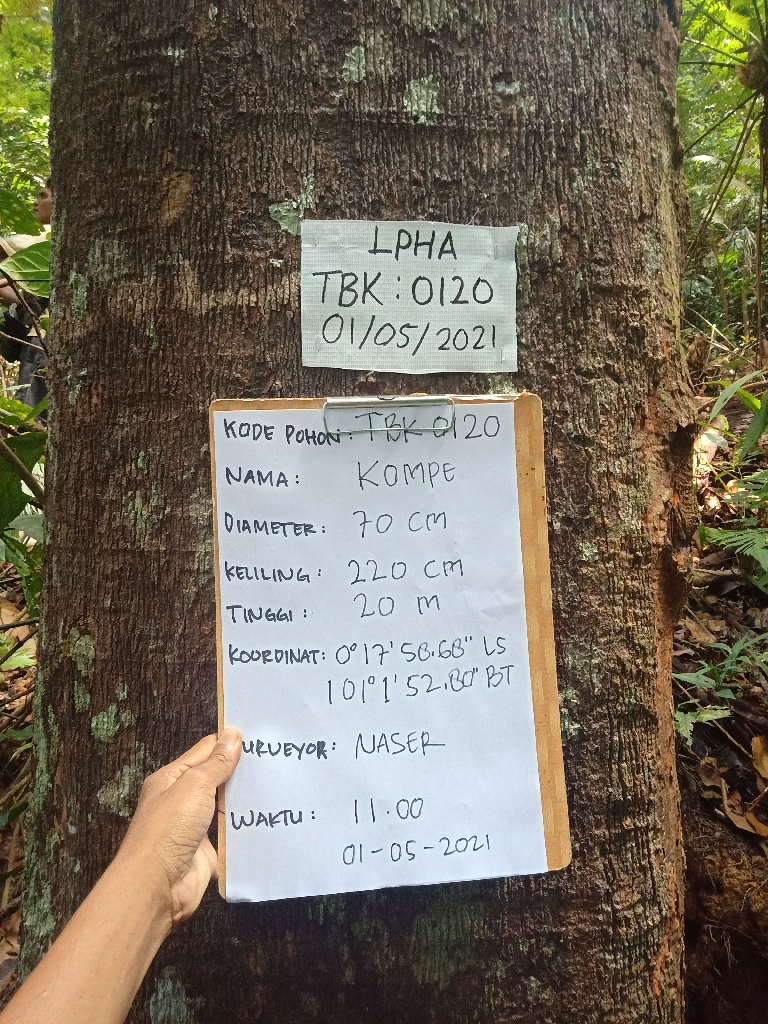 LPHA
TBK : 0120
01/05/2021
KODE POHON : TBK 0120
NAMA : KOMPE
DIAMETER : 70 CM
KELILING : 220 CM
TINGGI : 20 M
KOORDINAT : 0°17'58.68" LS
101°1'52.80" BT
URVEYOR : NASER
WAKTU : 11.00
01-05-2021